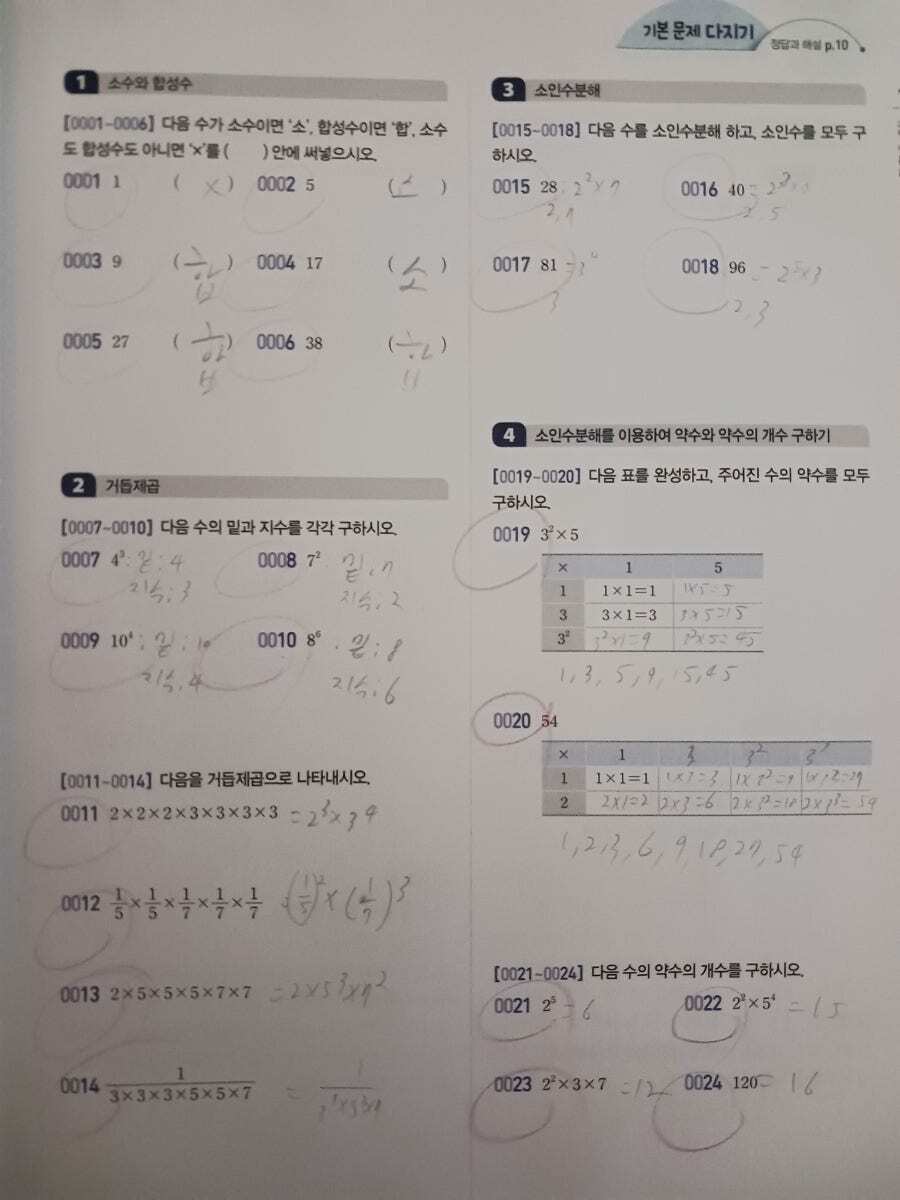 기본 문제 다지기
정답과 해설 p.10
1 소수와 합성수
[0001~0006] 다음 수가 소수이면 '소', 합성수이면 '합', 소수
도 합성수도 아니면 '×'를 ( ) 안에 써넣으시오.
0001 1 ( × ) 0002 5 ( 소 )
0003 9 ( 합 ) 0004 17 ( 소 )
0005 27 ( 합 ) 0006 38 ( 합 )
2 거듭제곱
[0007~0010] 다음 수의 밑과 지수를 각각 구하시오.
0007 4³ : 밑 : 4 0008 7² : 밑 : 7
지수 : 3 지수 : 2
0009 10⁴ : 밑 : 10 0010 8⁶ : 밑 : 8
지수 : 4 지수 : 6
[0011~0014] 다음을 거듭제곱으로 나타내시오.
0011 2×2×2×3×3×3×3 = 2³×3⁴
0012 1/5×1/5×1/7×1/7×1/7 = (1/5)²×(1/7)³
0013 2×5×5×5×7×7 = 2×5³×7²
0014 1/(3×3×3×5×5×7) =
3 소인수분해
[0015~0018] 다음 수를 소인수분해 하고, 소인수를 모두 구
하시오.
0015 28 : 2²×7 0016 40 = 2³×5
2, 7 2, 5
0017 81 = 3⁴ 0018 96 = 2⁵×3
3 2, 3
4 소인수분해를 이용하여 약수와 약수의 개수 구하기
[0019~0020] 다음 표를 완성하고, 주어진 수의 약수를 모두
구하시오.
0019 3²×5
× 1 5
1 1×1=1 1×5=5
3 3×1=3 3×5=15
3² 3²×1=9 3²×5=45
1, 3, 5, 9, 15, 45
0020 54
× 1 3 3² 3³
1 1×1=1 1×3=3 1×3²=9 1×3³=27
2 2×1=2 2×3=6 2×3²=18 2×3³=54
1, 2, 3, 6, 9, 18, 27, 54
[0021~0024] 다음 수의 약수의 개수를 구하시오.
0021 2⁵ = 6 0022 2²×5⁴ = 15
0023 2²×3×7 = 12 0024 120 = 16